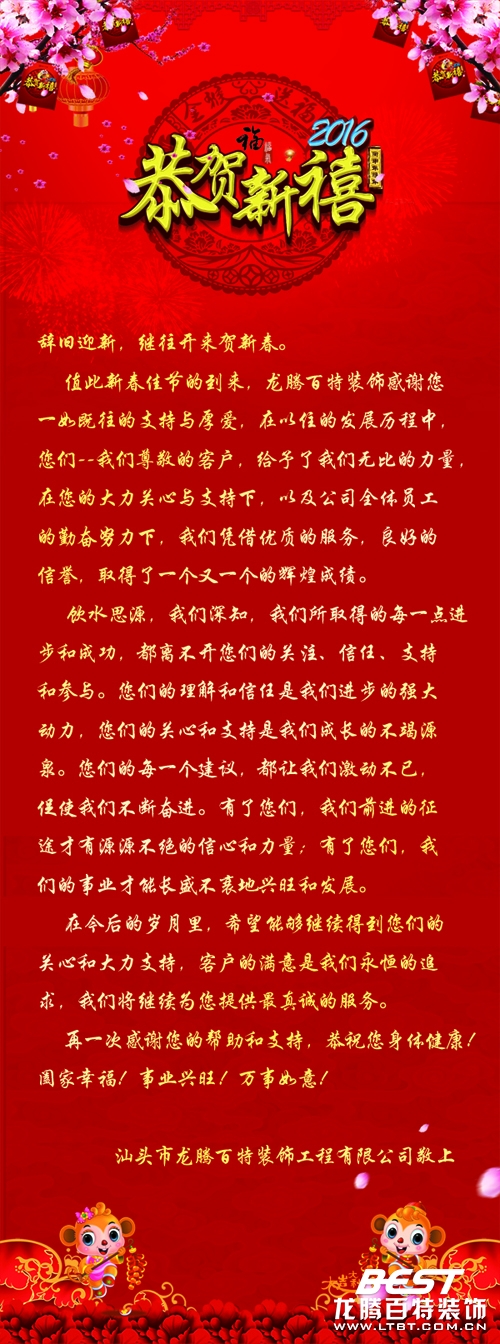 金猴 送福
福
2016
恭贺新禧
恭贺新禧
恭贺新禧
辞旧迎新，继往开来贺新春。
值此新春佳节的到来，龙腾百特装饰感谢您
一如既往的支持与厚爱，在以住的发展历程中，
您们--我们尊敬的客户，给予了我们无比的力量，
在您的大力关心与支持下，以及公司全体员工
的勤奋努力下，我们凭借优质的服务，良好的
信誉，取得了一个又一个的辉煌成绩。
饮水思源，我们深知，我们所取得的每一点进
步和成功，都离不开您们的关注、信任、支持
和参与。您们的理解和信任是我们进步的强大
动力，您们的关心和支持是我们成长的不竭源
泉。您们的每一个建议，都让我们激动不已，
促使我们不断奋进。有了您们，我们前进的征
途才有源源不绝的信心和力量；有了您们，我
们的事业才能长盛不衰地兴旺和发展。
在今后的岁月里，希望能够继续得到您们的
关心和大力支持，客户的满意是我们永恒的追
求，我们将继续为您提供最真诚的服务。
再一次感谢您的帮助和支持，恭祝您身体健康！
阖家幸福！事业兴旺！万事如意！
汕头市龙腾百特装饰工程有限公司敬上
BEST
龙腾百特装饰
WWW.LTBT.COM.CN